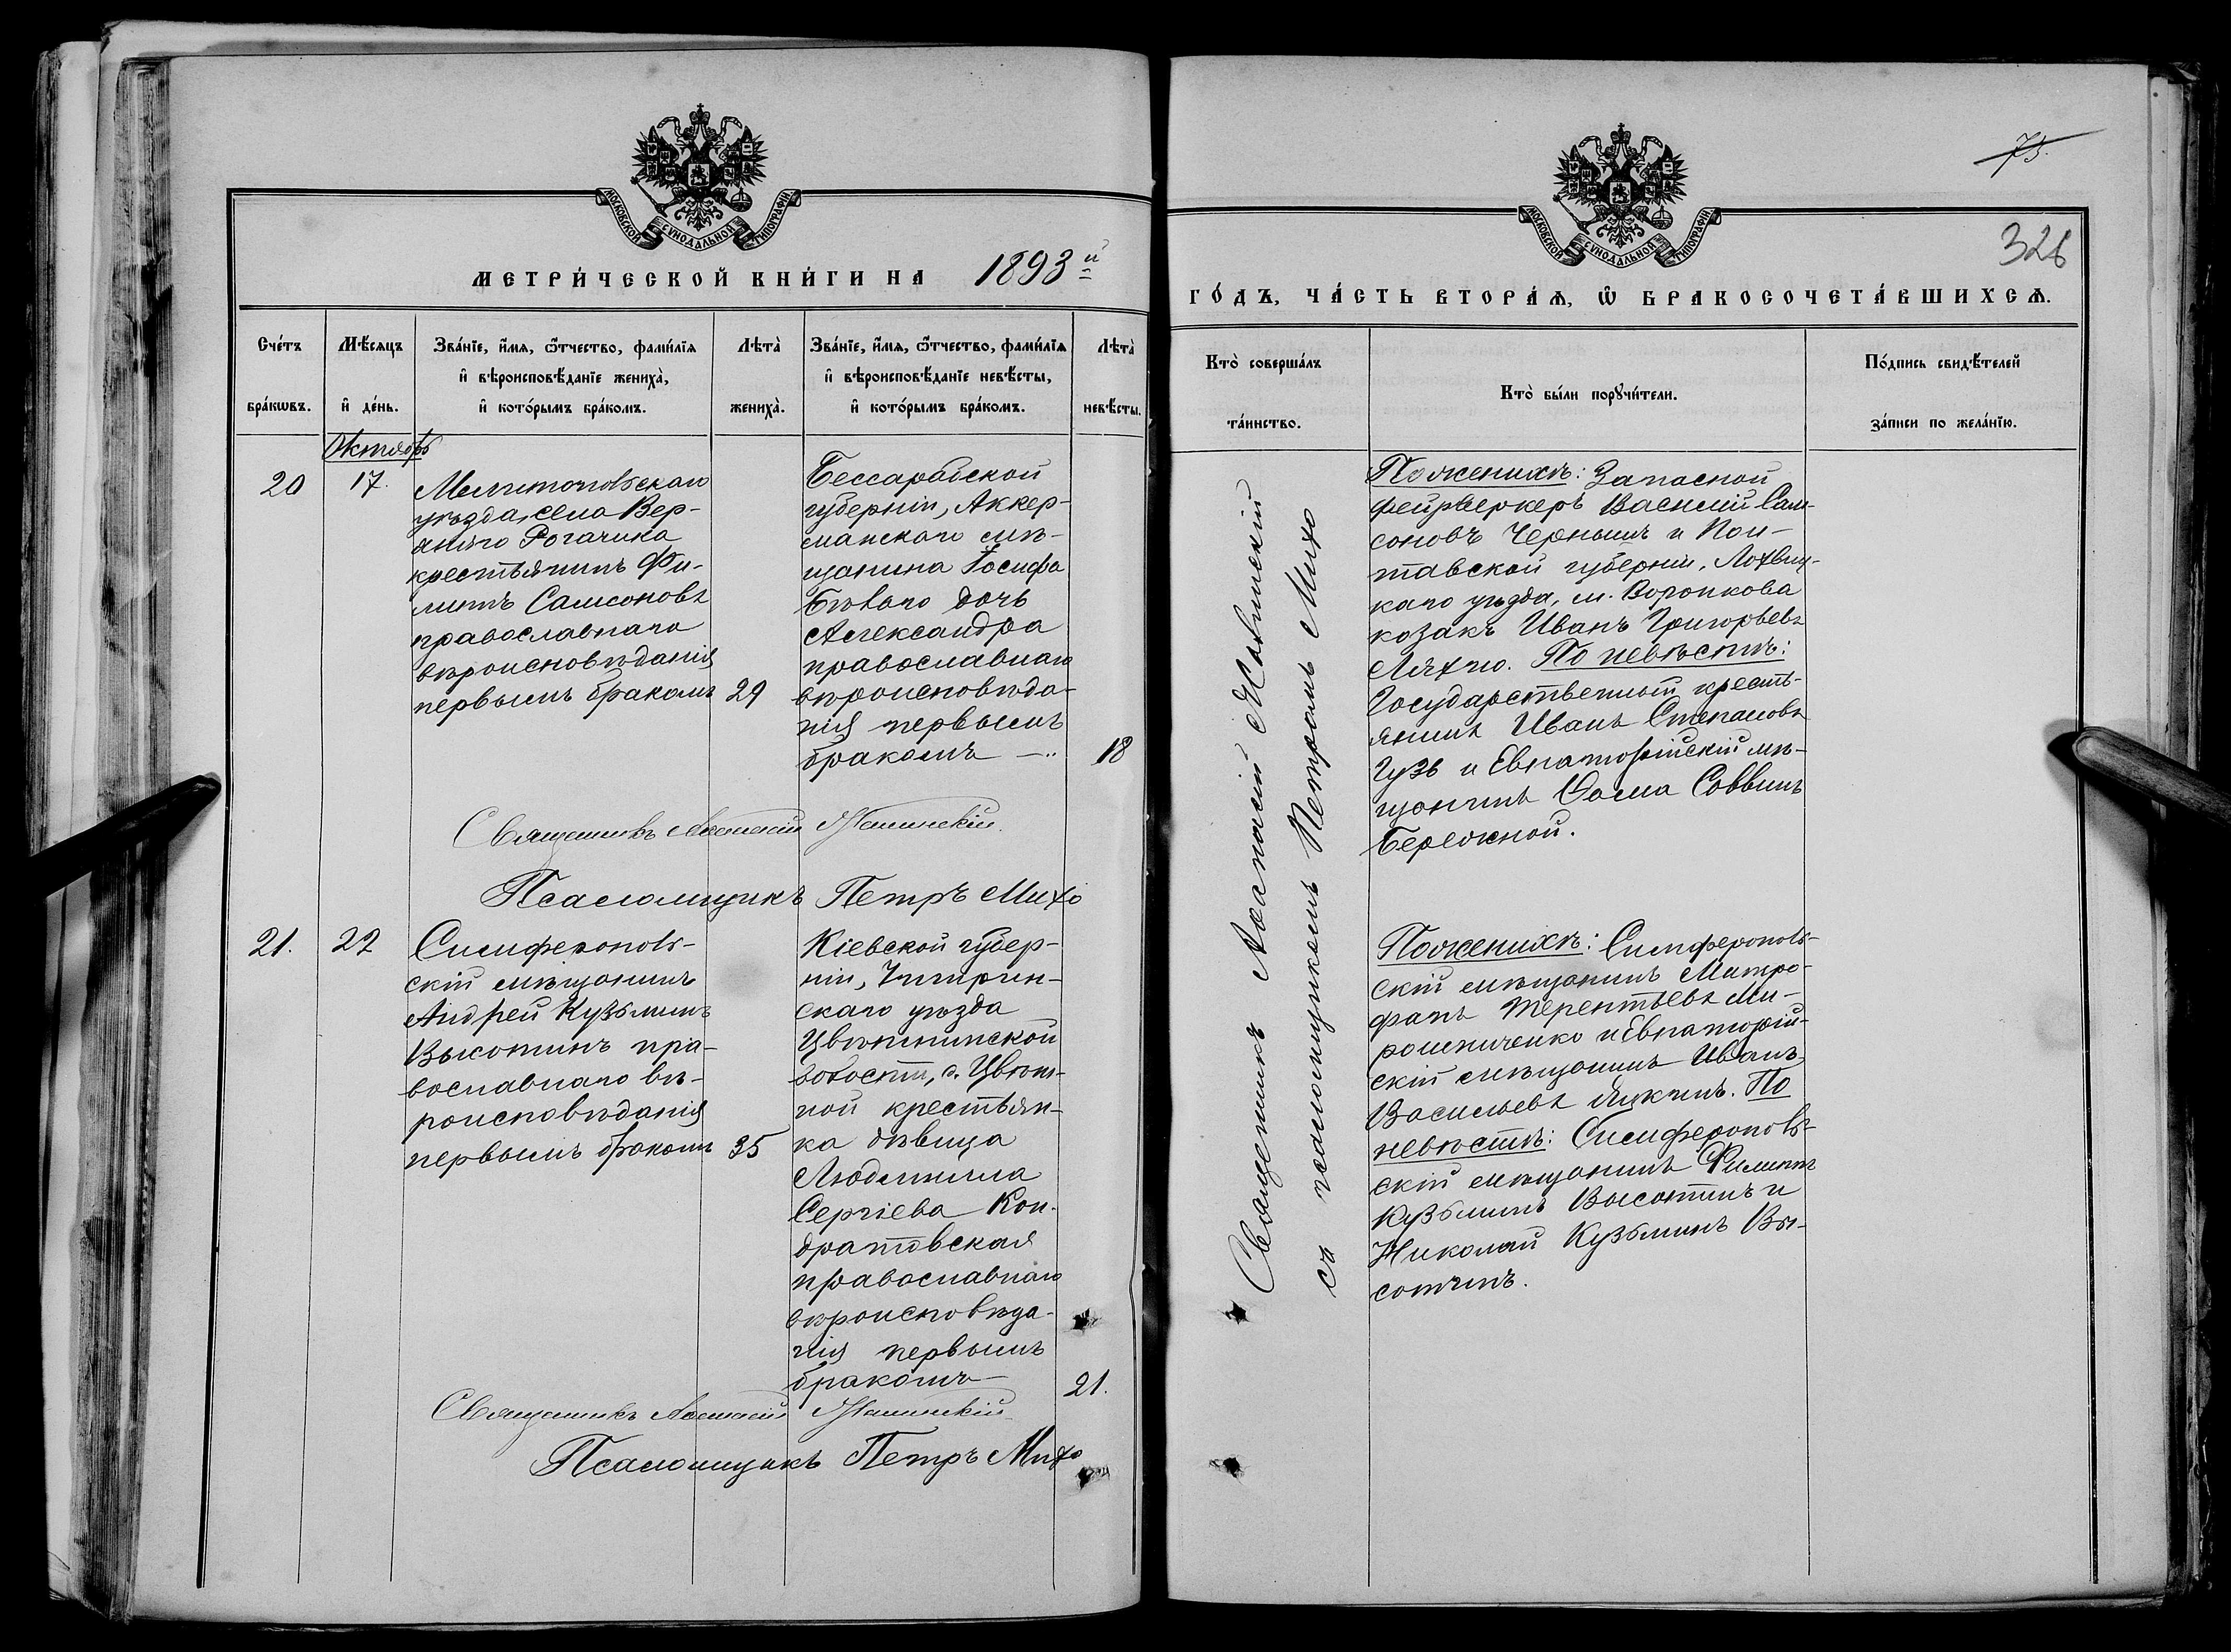 МОСКОВСКОЙ СУНОДАЛЬНОЙ ТИПОГРАФІИ.
МЕТРИ́ЧЕСКОЙ КНИ́ГИ НА 1893й
Сче́тъ бра́кѡвъ.
Мѣ́сяцъ и҆ де́нь.
Зва́нїе, и҆́мя, ѻ҆́тчество, фами́лїя
и҆ вѣроисповѣ́данїе жениха̀,
и҆ кото́рымъ бра́комъ.
Лѣта̀ жениха̀.
Зва́нїе, и҆́мя, ѻ҆́тчество, фами́лїя
и҆ вѣроисповѣ́данїе невѣ́сты,
и҆ кото́рымъ бра́комъ.
Лѣта̀ невѣ́сты.
Октябрь
20
17.
Мелитопольскаго
уѣзда, села Вер-
хняго Рогачика
крестьянинъ Фи-
липпъ Самсоновъ
православнаго
вѣроисповѣданія
первымъ бракомъ
29
Бессарабской
губерніи, Аккер-
манскаго мѣ-
щанина Іосифа
Бѣлаго дочь
Александра
православнаго
вѣроисповѣда-
нія первымъ
бракомъ —..
18
Священникъ Аѳанасій
Псаломщикъ Петръ Михо
21.
22
Симферополь-
скій мѣщанинъ
Андрей Кузьминъ
Высотинъ пра-
вославнаго вѣ-
роисповѣданія
первымъ бракомъ
35
Кіевской губер-
ніи, Чигирин-
скаго уѣзда
Цвѣтнинской
волости, с. Цвѣт-
ной крестьян-
ка дѣвица
Людмилла
Сергіева Кон-
дратовская
православнаго
вѣроисповѣда-
нія первымъ
бракомъ—
21.
Священникъ Аѳанасій
Псаломщикъ Петръ Михо
75.
326
МОСКОВСКОЙ СУНОДАЛЬНОЙ ТИПОГРАФІИ.
ГО́ДЪ, ЧА́СТЬ ВТОРА́Ѧ, Ѡ҆ БРАКОСОЧЕТА́ВШИХСѦ.
Кто̀ соверша́лъ
та́инство.
Кто̀ бы́ли порꙋчи́тели.
По́дпись свидѣ́телей
за́писи по жела́нїю.
Священникъ Аѳанасій
съ псаломщикомъ Петромъ Михо
По женихѣ: Запасной
фейрверкеръ Василій Сам-
соновъ Чернышъ и Пол-
тавской губерніи, Лохвиц-
каго уѣзда, м. Воронкова
козакъ Иванъ Григорьевъ
Ляхно. По невѣстѣ:
Государственный кресть-
янинъ Иванъ Степановъ
Гузь и Евпаторійскій мѣ-
щанинъ Ѳома Саввинъ
Бережной.
По женихѣ: Симферополь-
скій мѣщанинъ Митро-
фанъ Терентьевъ Ми-
рошниченко и Евпаторій-
скій мѣщанинъ Иванъ
Васильевъ Лукинъ. По
невѣстѣ: Симферополь-
скій мѣщанинъ Филиппъ
Кузьминъ Высотинъ и
Николай Кузьминъ Вы-
сотинъ.